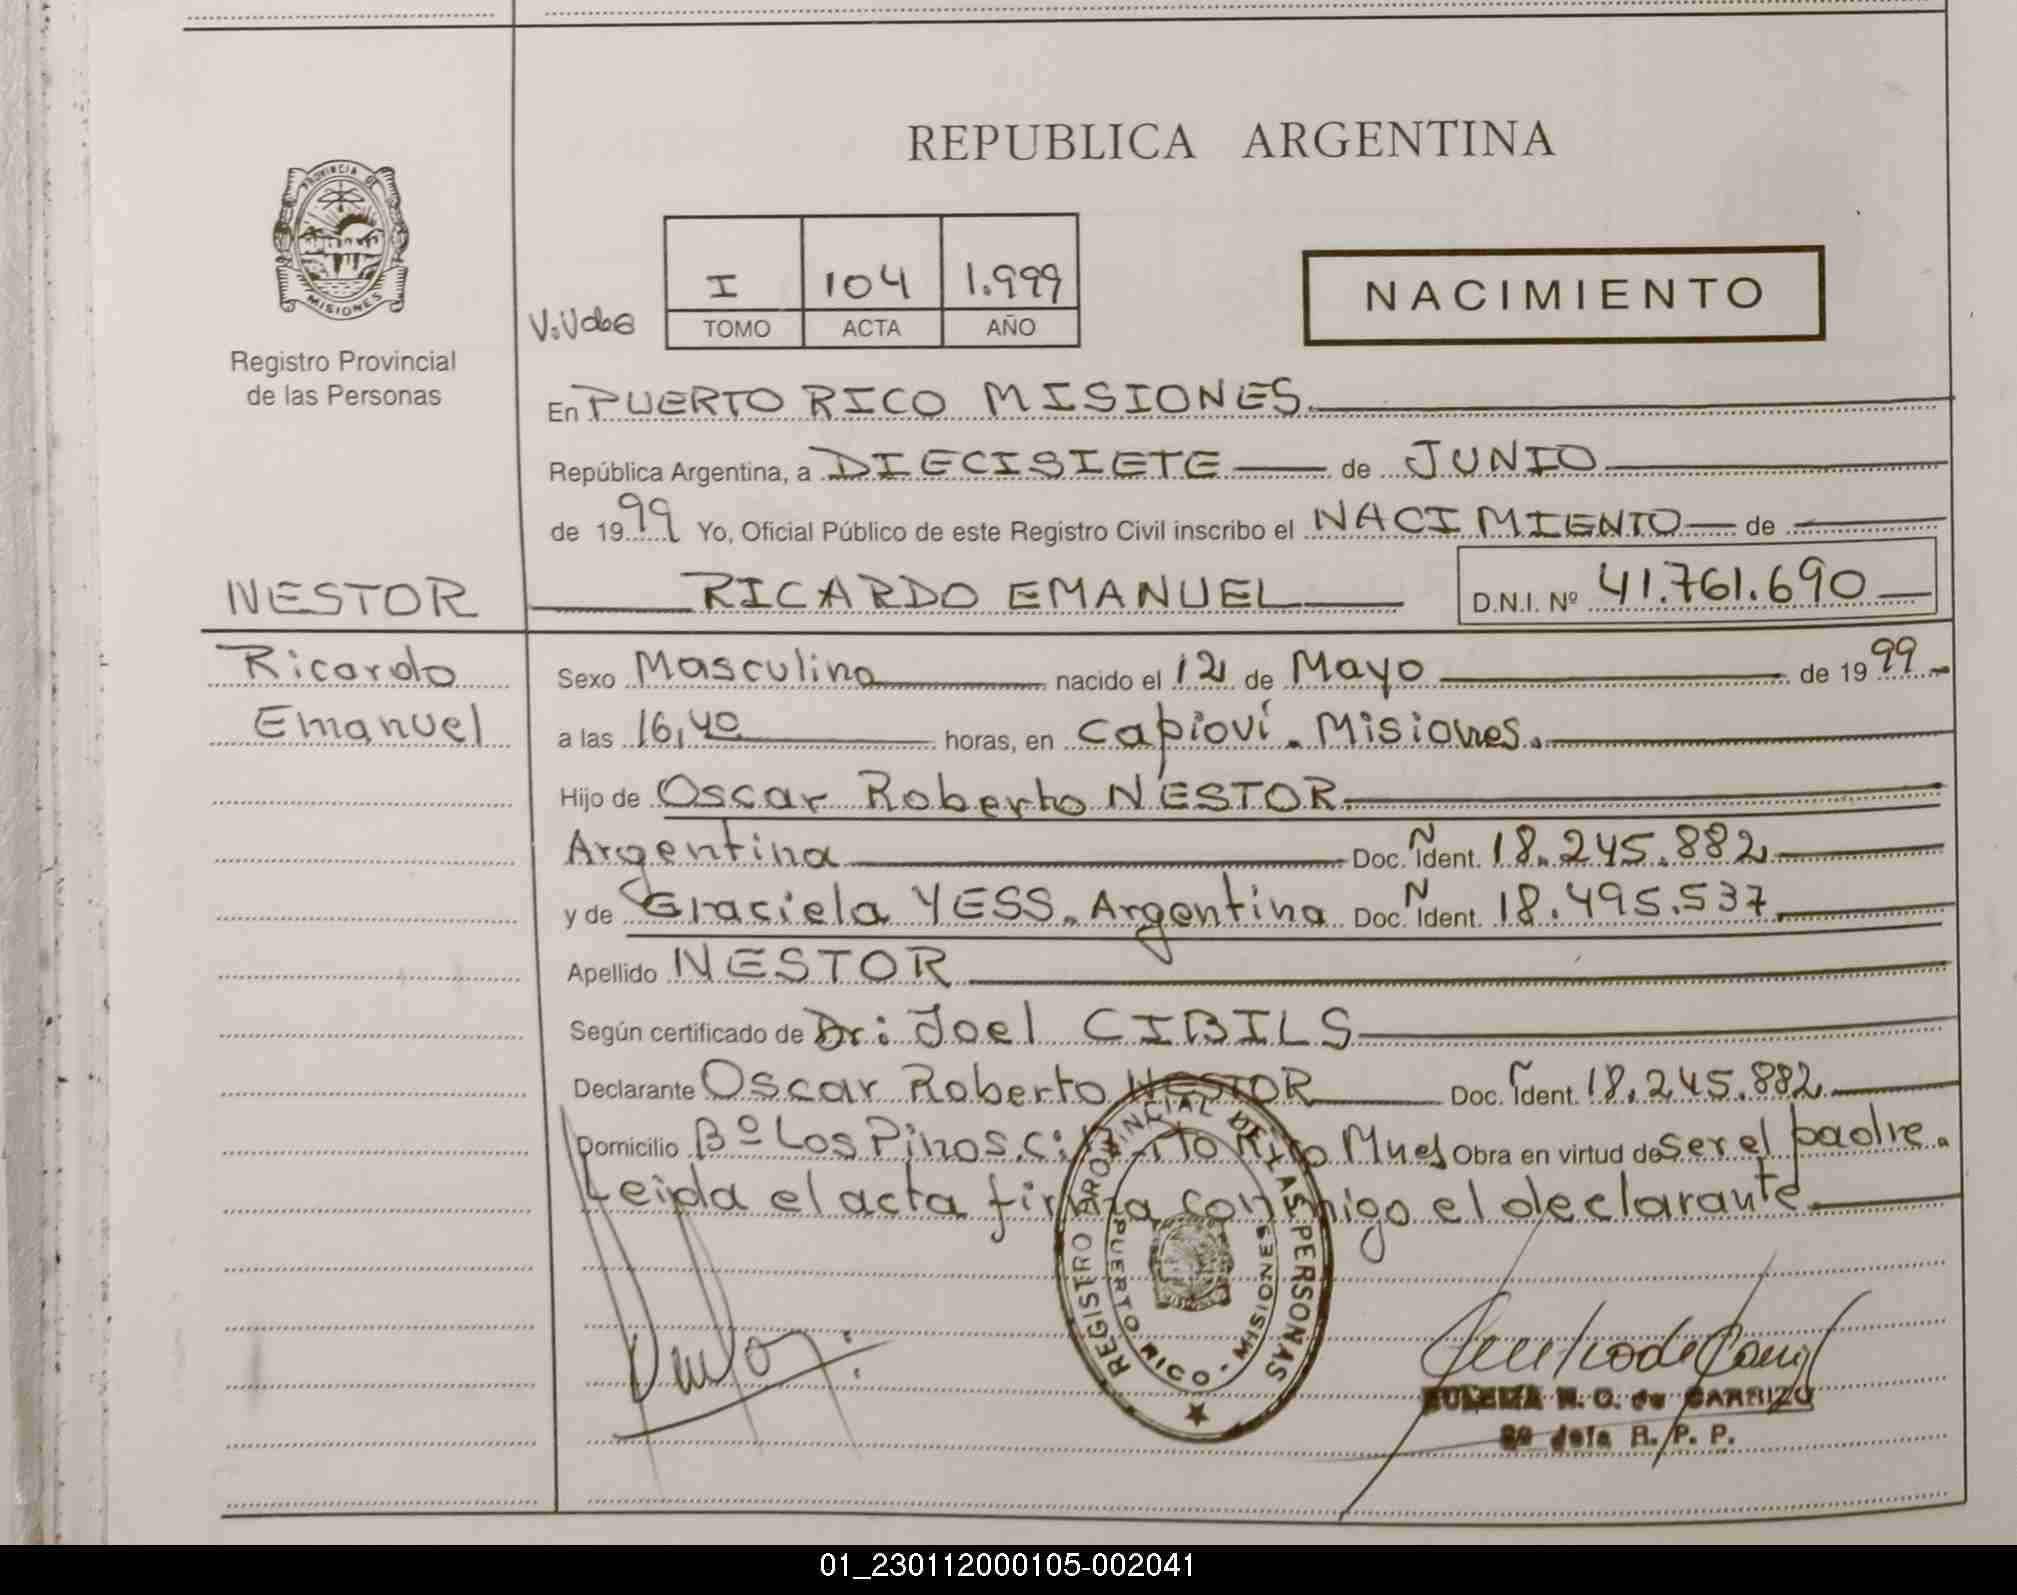 REPUBLICA ARGENTINA
PROVINCIA DE
MISIONES
Registro Provincial
de las Personas
I 104 1.999
TOMO ACTA AÑO
NACIMIENTO
En PUERTO RICO MISIONES.
República Argentina, a DIECISIETE de JUNIO
de 1999 Yo, Oficial Público de este Registro Civil inscribo el NACIMIENTO de
NESTOR RICARDO EMANUEL D.N.I. Nº 41.761.690
Ricardo Sexo Masculino nacido el 12 de Mayo de 1999
Emanuel a las 16,40 horas, en Capioví. Misiones.
Hijo de Oscar Roberto NESTOR
Argentina Doc. Ident. 18.245.882
y de Graciela YESS. Argentina Doc. Ident. 18.495.537
Apellido NESTOR
Según certificado de Dr: Joel CIBILS
Declarante Oscar Roberto NESTOR Doc. Ident. 18.245.882
Domicilio Bº Los Pinos. Rico Obra en virtud de ser el padre.
Leida el acta firma conmigo el declarante
REGISTRO PROVINCIAL DE LAS PERSONAS
PUERTO RICO - MISIONES
N. O. de CARRIZO
R. P. P.
01_230112000105-002041